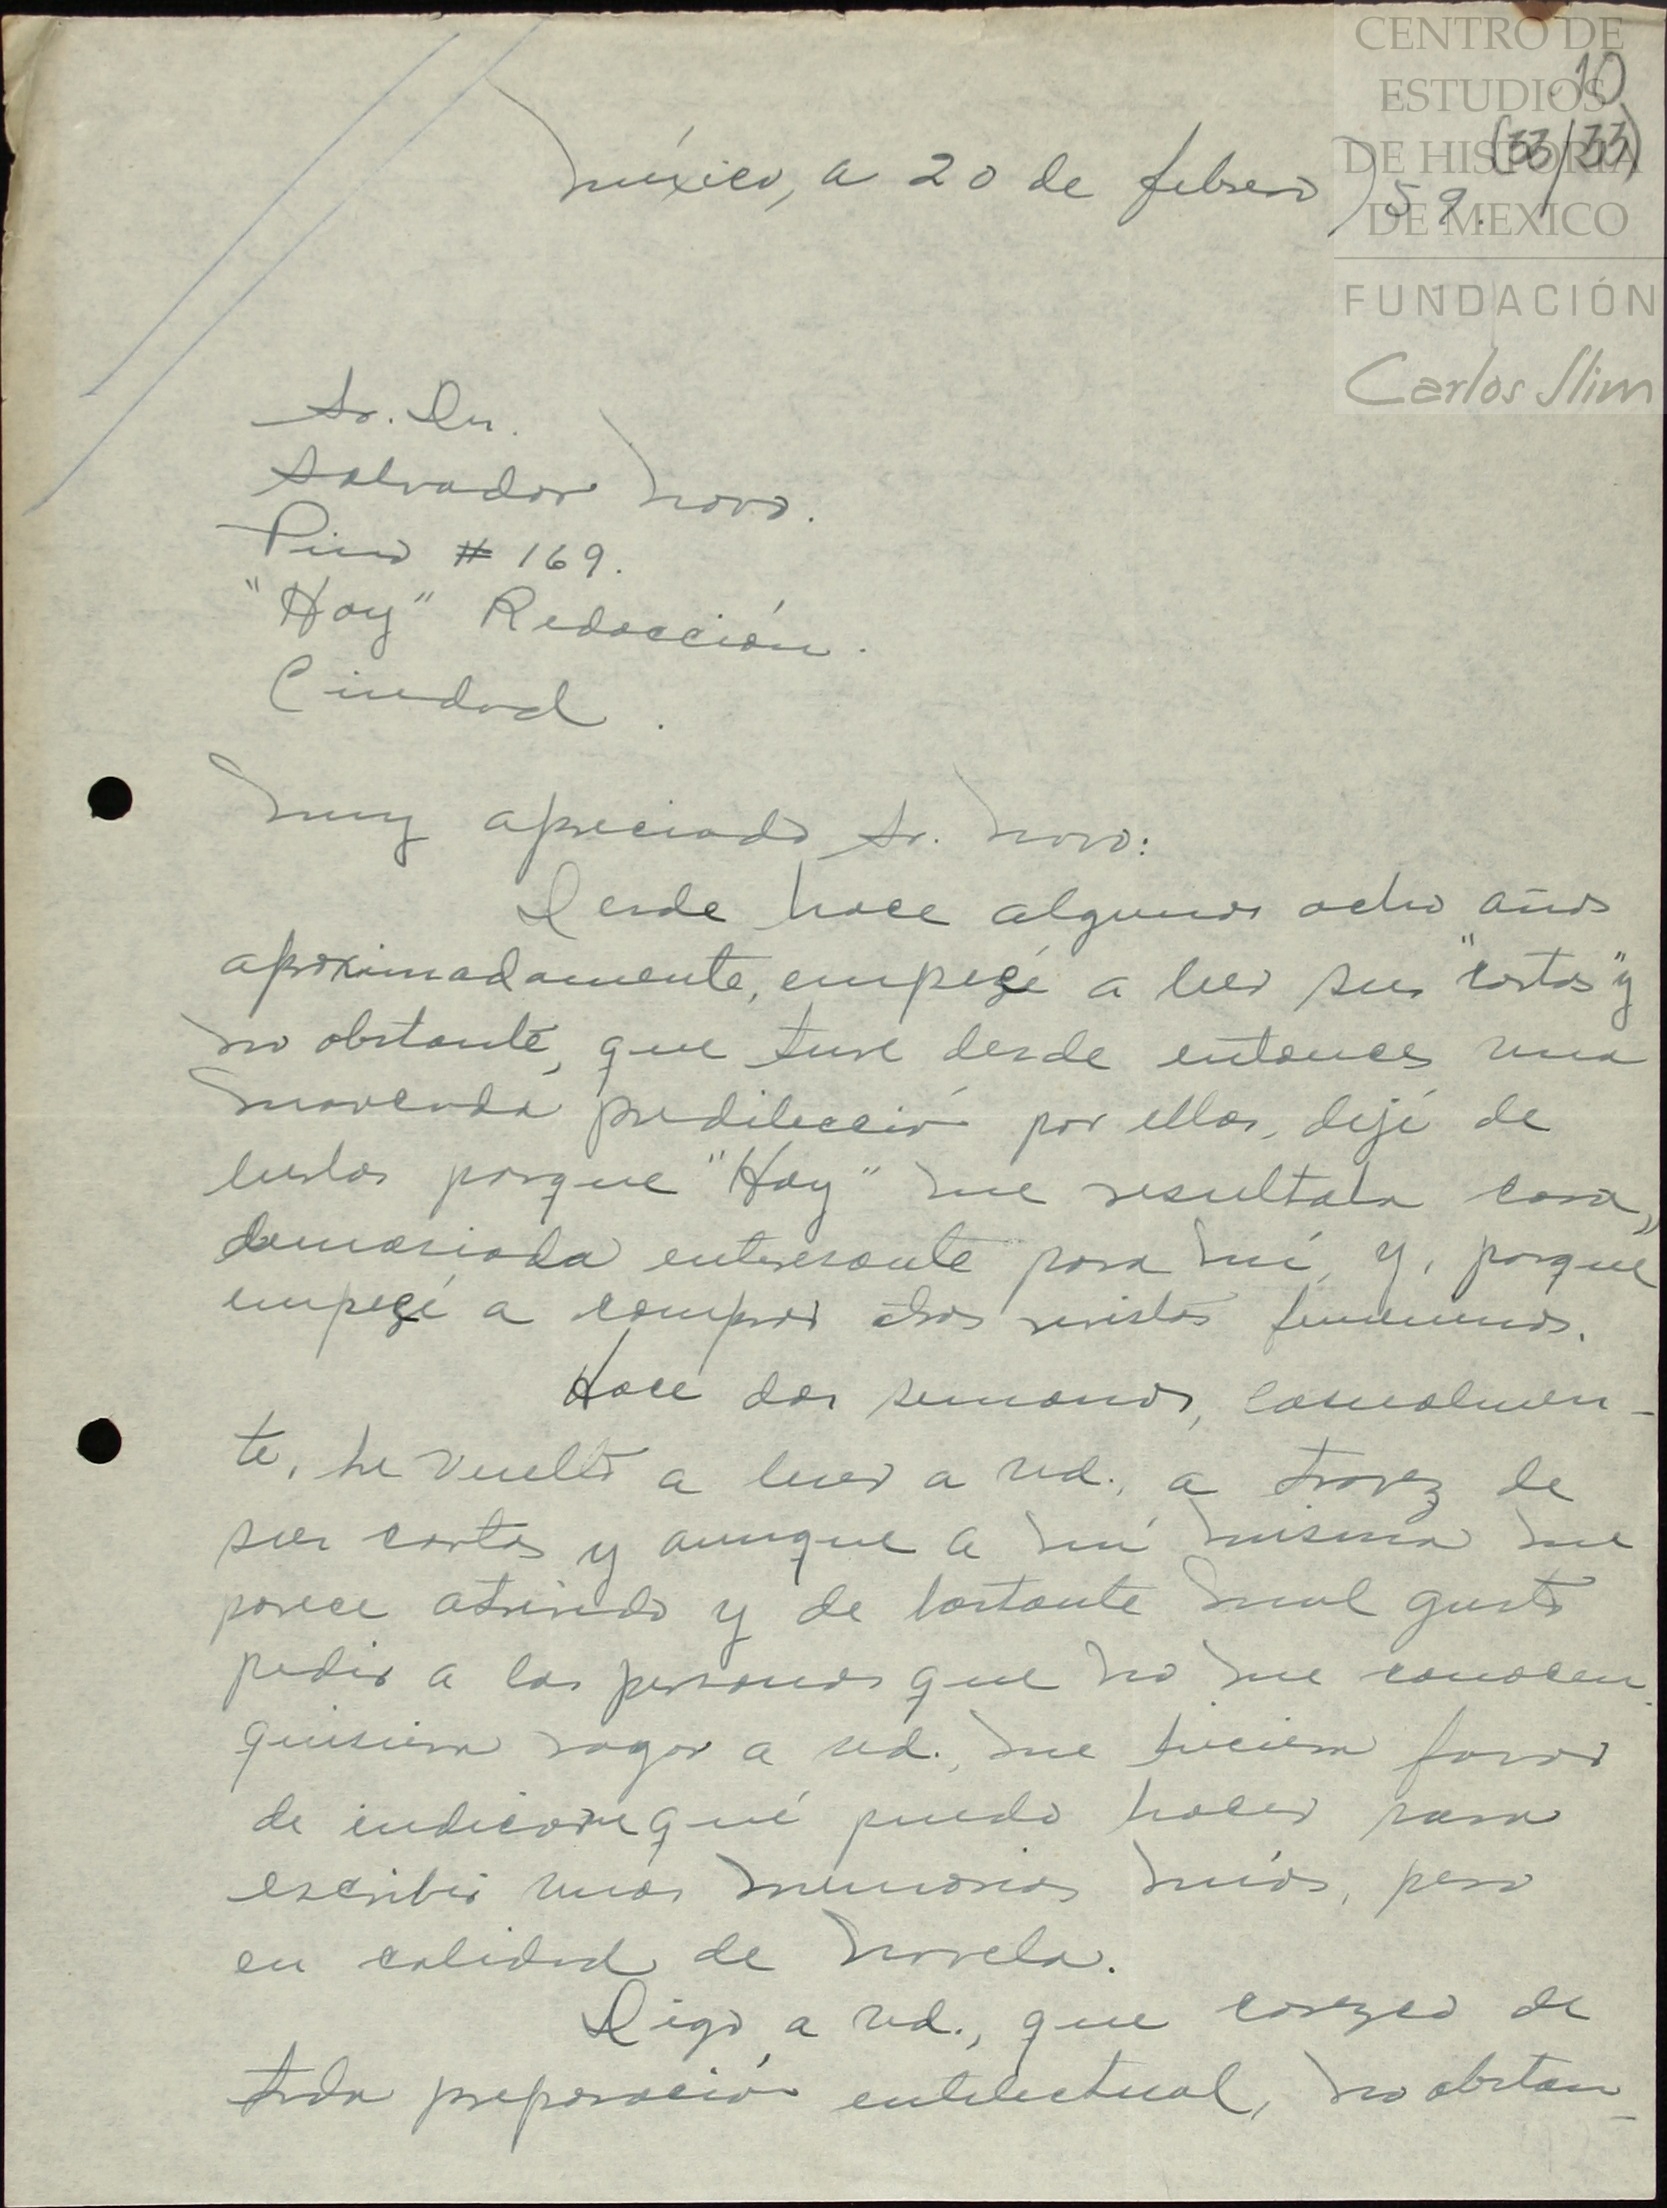 CENTRO DE
ESTUDIOS
DE HISTORIA
DE MEXICO
FUNDACIÓN
Carlos Slim
10
(33/33)
México, a 20 de febrero, 59.
Sr. Dn.
Salvador Novo.
Pino # 169.
"Hoy" Redacción.
Ciudad.
Muy apreciado Sr. Novo:
Desde hace algunos ocho años
aproximadamente, empezé a leer sus "cartas" y
no obstante, que tuve desde entonces una
marcada predilección por ellas, dejé de
leerlas porque "Hoy" me resultaba cara,
demasiada enteresante para mí, y, porque
empezé a comprar otras revistas femeninas.
Hace dos semanas, casualmen-
te, he vuelto a leer a ud., a travez de
sus cartas y aunque a mí misma me
parece atrevido y de bastante mal gusto
pedir a las personas que no me conocen,
quisiera rogar a ud., me hiciera favor
de indicarme qué puedo hacer para
escribir unas memorias mías, pero
en calidad de novela.
Digo a ud., que carezco de
toda preparación entelectual, no obstan-